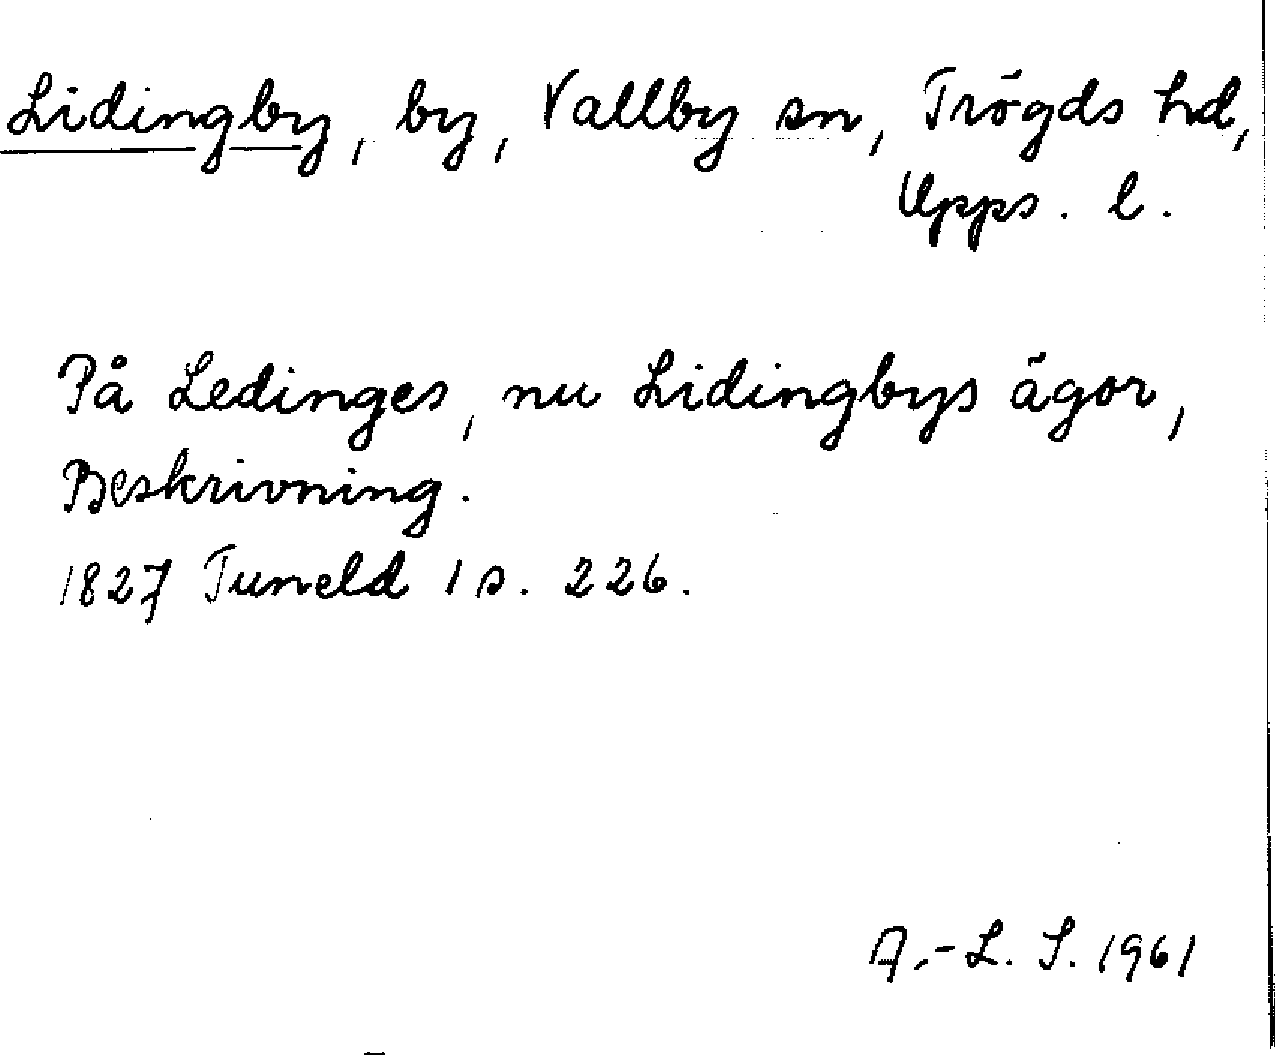 Lidingby, by, Vallby sn, Trögds hd,
Upps. l.
På Ledinges, nu Lidingbys ägor,
Beskrivning.
1827 Tuneld 1 s. 226.
A.-L. S. 1961